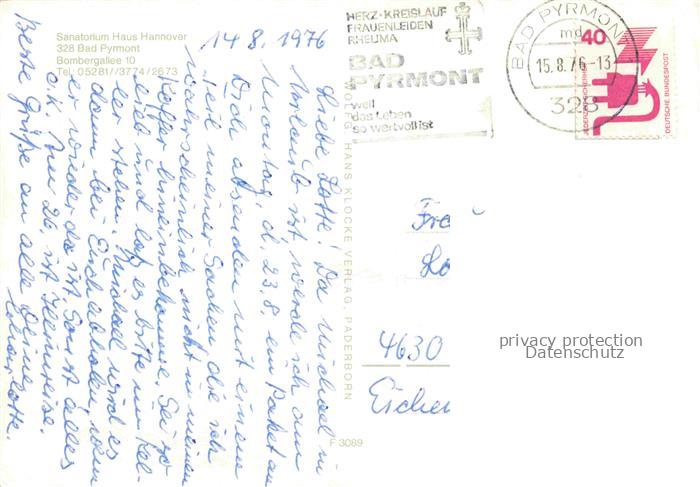 Sanatorium Haus Hannover
328 Bad Pyrmont
Bombergallee 10
Tel: 05281/3774/2673
14.8.1976
Liebe Lotte! Da Michael in
Urlaub ist werde ich am
Montag, d. 23.8. ein Paket an
Dich absenden mit einem
Teil meiner Sachen die ich
wahrscheinlich nicht in meinen
Koffer hineinbekomme. Sei so
lieb und laß es bitte im Kel-
ler stehen. Michael wird es
dann bei Euch abholen, wenn
er wieder da ist. Sonst alles
o.k. Am 26. ist Heimreise.
Beste Grüße an alle Deine
WOLFG. HANS KLOCKE VERLAG, PADERBORN
F 3089
HERZ-KREISLAUF
FRAUENLEIDEN
RHEUMA
BAD
PYRMONT
weil
das Leben
so wertvoll ist
BAD PYRMONT
md
15.8.76-13
328
40
JEDERZEIT SICHERHEIT
DEUTSCHE BUNDESPOST
4630
privacy protection
Datenschutz